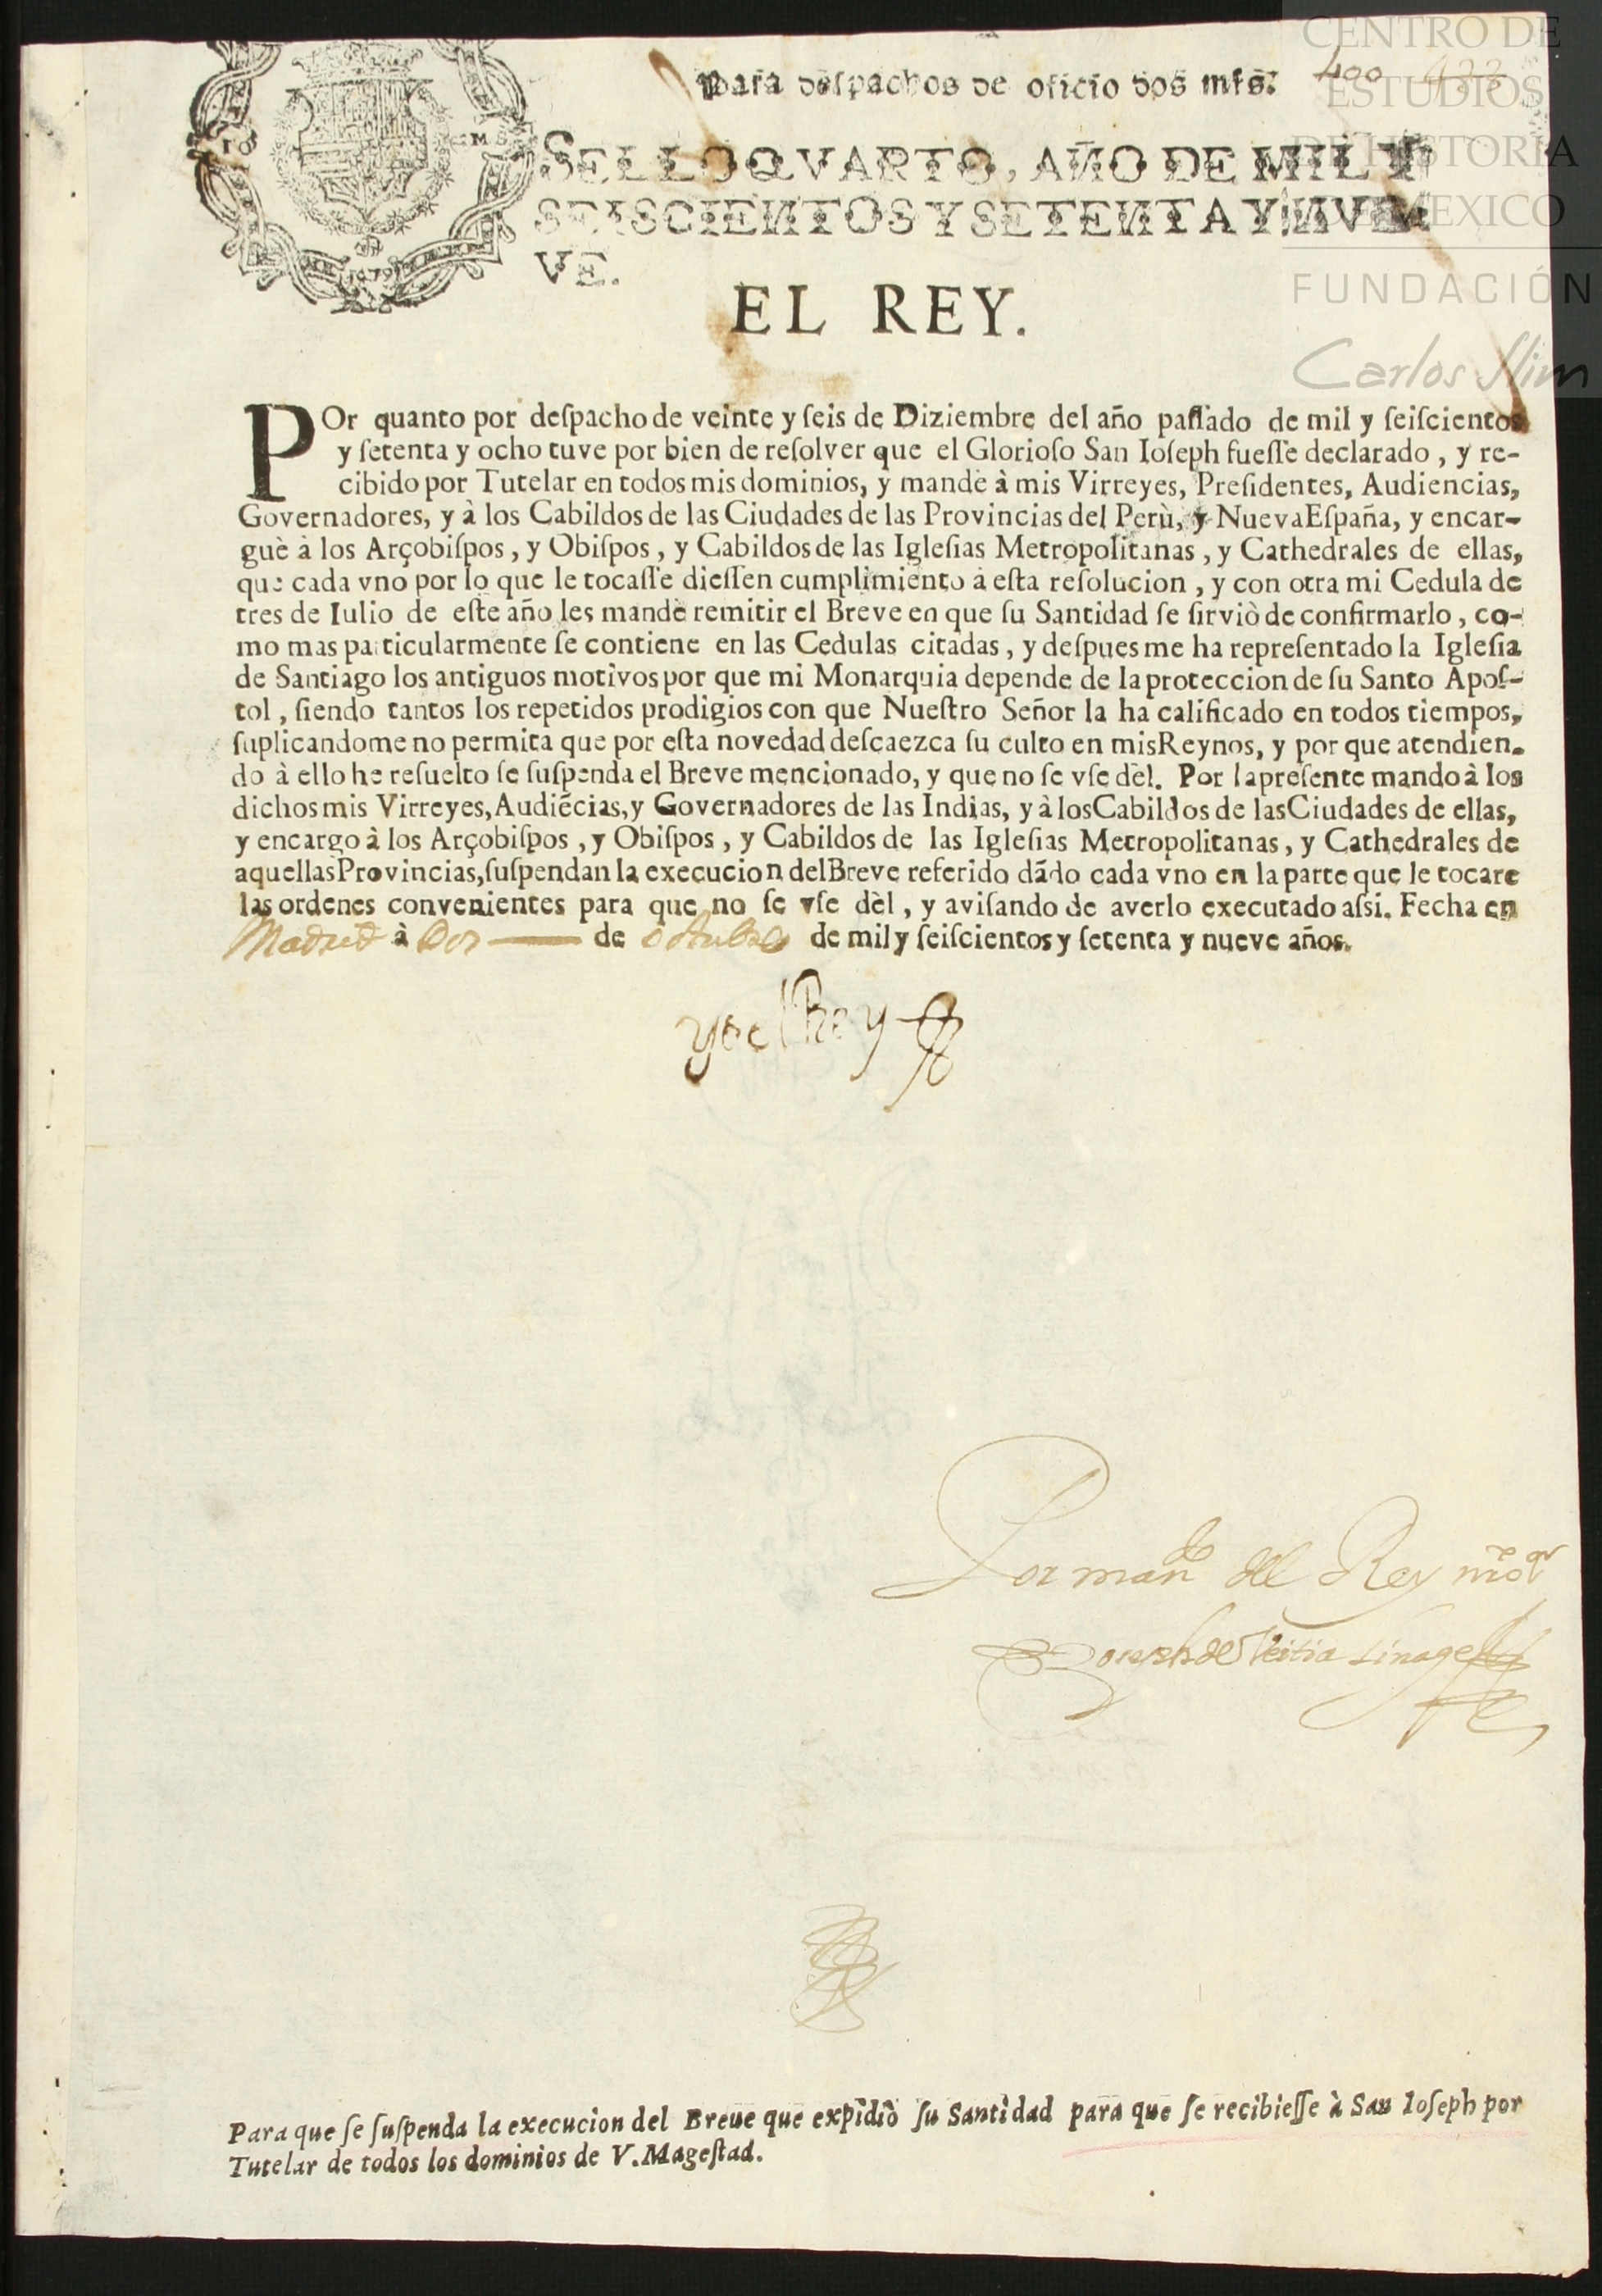 Para despachos de oficio dos mrs.
400 422
SELLO QVARTO, AÑO DE MIL Y
SEISCIENTOS Y SETENTA Y NVE
VE.
1679
EL REY.
POr quanto por deſpacho de veinte y ſeis de Diziembre del año paſſado de mil y ſeiſcientos
y ſetenta y ocho tuve por bien de reſolver que el Glorioſo San Ioſeph fueſſe declarado, y re-
cibido por Tutelar en todos mis dominios, y mandè à mis Virreyes, Preſidentes, Audiencias,
Governadores, y à los Cabildos de las Ciudades de las Provincias del Perù, y Nueva Eſpaña, y encar-
guè à los Arçobiſpos, y Obiſpos, y Cabildos de las Igleſias Metropolitanas, y Cathedrales de ellas,
que cada vno por lo que le tocaſſe dieſſen cumplimiento à eſta reſolucion, y con otra mi Cedula de
tres de Iulio de eſte año les mandè remitir el Breve en que ſu Santidad ſe ſirviò de confirmarlo, co-
mo mas particularmente ſe contiene en las Cedulas citadas, y deſpues me ha repreſentado la Igleſia
de Santiago los antiguos motivos por que mi Monarquia depende de la proteccion de ſu Santo Apoſ-
tol, ſiendo tantos los repetidos prodigios con que Nueſtro Señor la ha calificado en todos tiempos,
ſuplicandome no permita que por eſta novedad deſcaezca ſu culto en mis Reynos, y por que atendien-
do à ello he reſuelto ſe ſuſpenda el Breve mencionado, y que no ſe vſe dèl. Por la preſente mando à los
dichos mis Virreyes, Audiẽcias, y Governadores de las Indias, y à los Cabildos de las Ciudades de ellas,
y encargo à los Arçobiſpos, y Obiſpos, y Cabildos de las Igleſias Metropolitanas, y Cathedrales de
aquellas Provincias, ſuſpendan la execucion del Breve referido dãdo cada vno en la parte que le tocare
las ordenes convenientes para que no ſe vſe dèl, y aviſando de averlo executado aſsi. Fecha en
Madrid à Dos de octubre de mil y ſeiſcientos y ſetenta y nueve años.
yo el Rey
Por mando del Rey nro sr
Joseph de Veitia Linage
Para que ſe ſuſpenda la execucion del Breue que expidiò ſu Santidad para que ſe recibieſſe à San Ioſeph por
Tutelar de todos los dominios de V. Mageſtad.
CENTRO DE
ESTUDIOS
DE HISTORIA
DE MEXICO
FUNDACIÓN
Carlos Slim